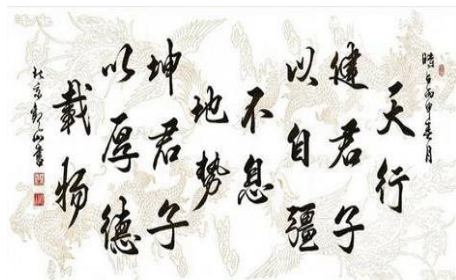 時在丙申春月
天行
健君子
以自彊
不息
地勢
坤君子
以厚德
載物